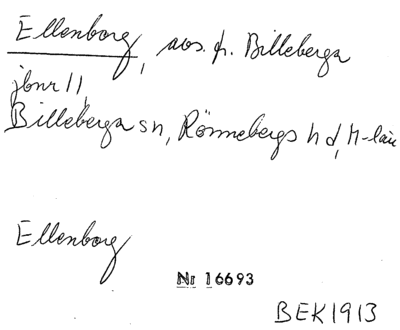 Ellenborg, avs. fr. Billeberga
jbnr 11,
Billeberga sn, Rönnebergs hd, M-län
Ellenborg
Nr 16693
BEK1913